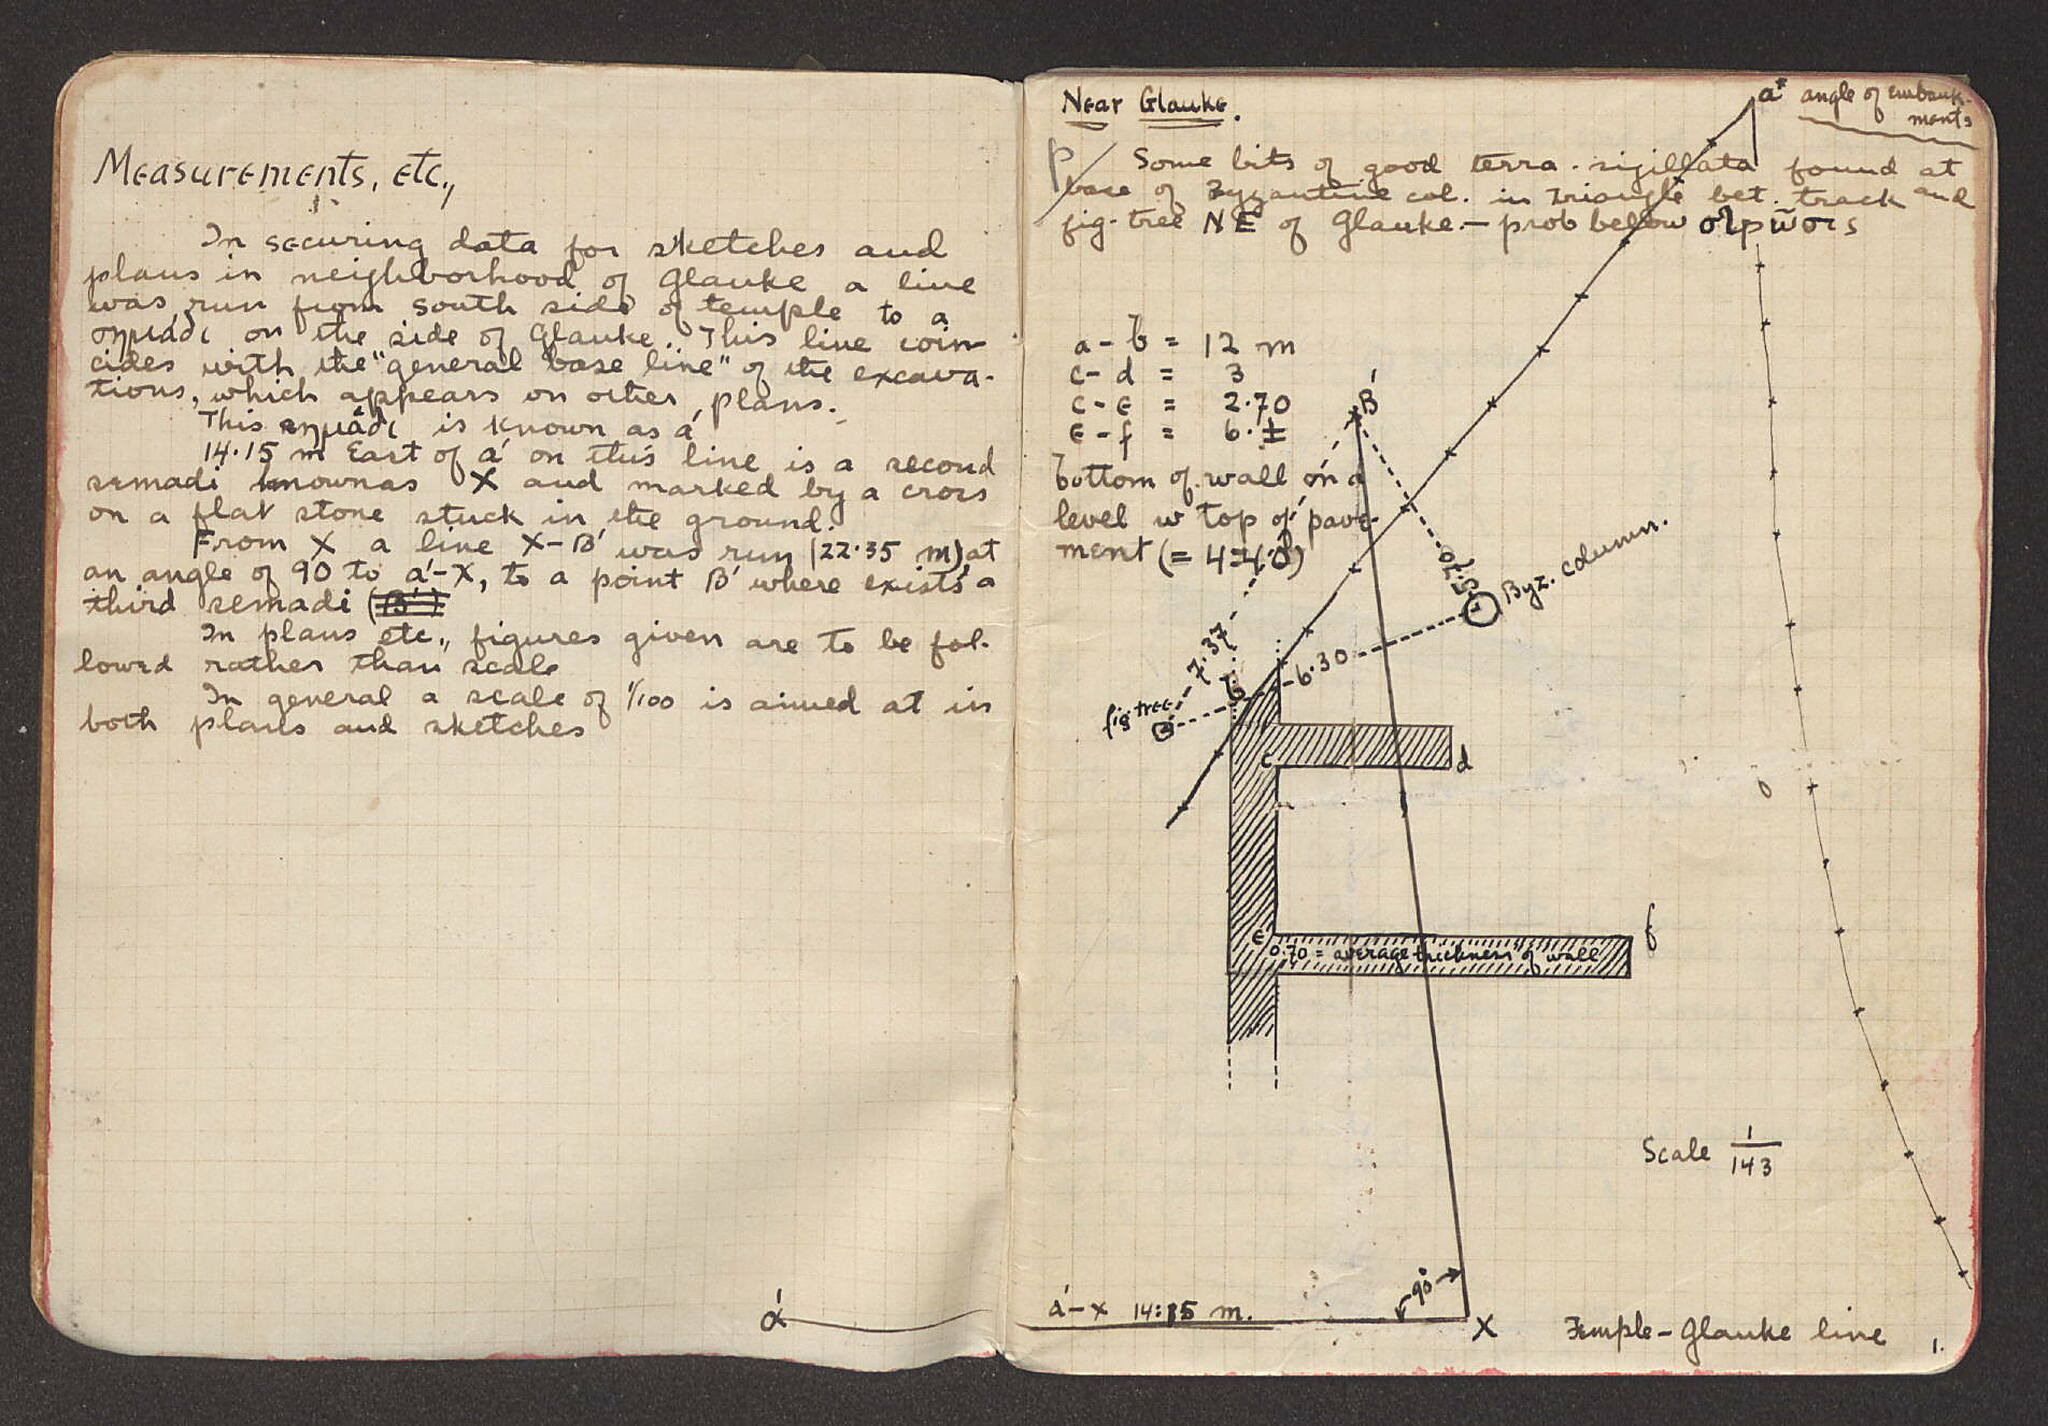 Measurements, etc.,
In securing data for sketches and
plans in neighborhood of Glauke a line
was run from south side of temple to a
σημάδι on the side of Glauke. This line coin-
cides with the "general base line" of the excava-
tions, which appears on other plans.
This σημάδι is known as á
14.15 m East of á on this line is a second
semadi known as X and marked by a cross
on a flat stone stuck in the ground.
From X a line X-B' was run (22.35 m), at
an angle of 90 to á-X, to a point B' where exists a
third semadi (B')
In plans etc., figures given are to be fol-
lowed rather than scale
In general a scale of 1/100 is aimed at in
both plans and sketches
ά
Near Glauke.
a* angle of embank-
ments
P Some bits of good terra-sigillata found at
base of Byzantine col. in triangle bet. track and
fig-tree NE of Glauke - prob below
a-b = 12 m
c-d = 3
c-e = 2.70
e-f = 6.±
bottom of wall on a
level w top of pave-
ment (= 4.40)
B'
5.70
Byz. column.
7.37
6.30
fig tree
b
c
d
e
f
0.70 = average thickness of wall
Scale 1/143
90°
á-x 14:15 m.
X
Temple-Glauke line
1.